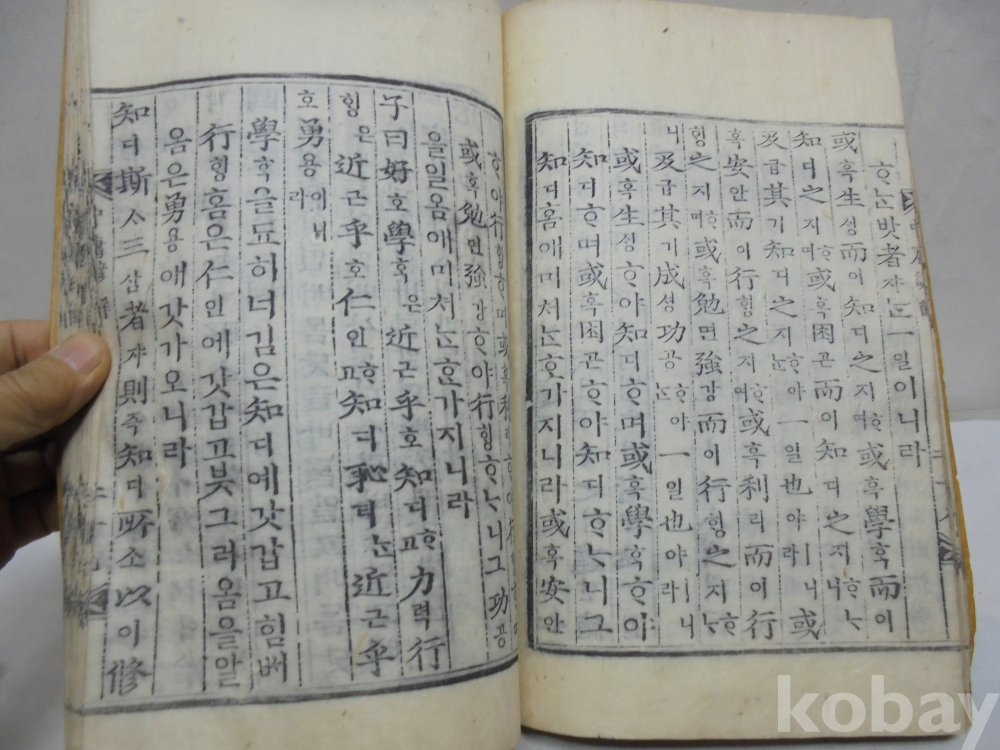 ᄒᆞᄂᆞᆫ밧者쟈ᄂᆞᆫ一일이니라
或혹生ᄉᆡᆼ而이知디之지ᄒᆞ며或혹學ᄒᆞᆨ而이
知디之지ᄒᆞ며或혹困곤而이知디之지ᄒᆞᄂᆞ니
及급其기知디之지ᄒᆞ야ᄂᆞᆫ一일也야ㅣ니라或
혹安안而이行ᄒᆡᆼ之지ᄒᆞ며或혹利리而이行
ᄒᆡᆼ之지ᄒᆞ며或혹勉면強강而이行ᄒᆡᆼ之지ᄒᆞᄂᆞ
니及급其기成셩功공ᄒᆞ야ᄂᆞᆫ一일也야ㅣ니라
或혹生ᄉᆡᆼᄒᆞ야知디ᄒᆞ며或혹學ᄒᆞᆨᄒᆞ야
知디ᄒᆞ며或혹困곤ᄒᆞ야知디ᄒᆞᄂᆞ니그
知디홈애미처ᄂᆞᆫᄒᆞᆫ가지니라或혹安안
ᄒᆞ야行ᄒᆡᆼᄒᆞ며或혹利리ᄒᆞ야行ᄒᆡᆼᄒᆞ며
或혹勉면強강ᄒᆞ야行ᄒᆡᆼᄒᆞᄂᆞ니그功공
을일옴애미처ᄂᆞᆫᄒᆞᆫ가지니라
子曰好호學ᄒᆞᆨ은近근乎호知디ᄒᆞ고力력行
ᄒᆡᆼ은近근乎호仁인ᄒᆞ고知디恥티ᄂᆞᆫ近근乎
호勇용이니라
學ᄒᆞᆨ을됴히너김은知디예갓갑고힘ᄡᅥ
行ᄒᆡᆼ홈은仁인에갓갑고붓그러옴을알
옴은勇용애갓가오니라
知디斯ᄉᆞ三삼者쟈則즉知디所소以이修
kobay